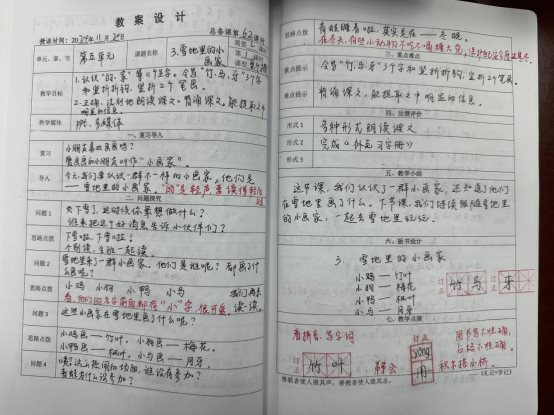 教 案 设 计
授课时间:2024年11月28日
总备课第62课时
单元、章、节
第五单元
课题名称
3.雪地里的小画家
教学目标
1.认识“的、家”等
会写“竹、马、牙”3个字
和竖折折钩、竖折2个笔画。
2.正确、流利地朗读课文。背诵课文。能提取文中
明显的信息。
教学媒体
PPT、多媒体
一、复习导入
复习
小朋友喜欢画画吗?
爱画画的小朋友叫作“小画家”。
导入
今天我们要认识一群不一样的小画家,他们是
——雪地里的小画家。“的”是轻声,要读得轻
二、问题探究
问题 1
天下雪了,这时候你最想做什么?
谁来把这个好消息告诉小伙伴们?
思路点拨
下雪啦,下雪啦!
个别读,全班一起读。
问题 2
雪地里来了一群小画家,他们是谁呢?都画了什
么画呢?
思路点拨
小鸡 小狗 小鸭 小马
我们再来
看,他们的名字前面都有“小”字,很可爱,读一读。
问题 3
这些小画家在雪地里画了什么呢?
思路点拨
小鸡画——竹叶,小狗画——梅花,
小鸭画——枫叶,小马画——月牙。
问题 4
咦?这么热闹的场面,谁没有参加?
青蛙为什么没参加?
思路点拨
青蛙睡着啦,其实是在——冬眠。
在冬天,有些小动物不吃不喝睡大觉,
三、重点难点
重点提示
会写“竹、马、牙”3个字和竖折折钩、竖折2个笔画。
难点提示
背诵课文,能提取文中明显的信息。
四、反馈评价
形式 1
多种形式朗读课文
形式 2
完成《补充习字册》
形式 3
五、教学小结
这节课,我们认识了一群小画家,还知道了他们
在雪地里画了什么。下节课,我们继续跟随雪地里
的小画家,一起去雪地里玩玩。
六、板书设计
3. 雪地里的小画家
小鸡——竹叶
小狗——梅花
小鸭——枫叶
小马——月牙
订正
竹 马 牙
七、教学点滴
看拼音,写字词
订正
竹 叶
订正
yòng
用
(札记·学记)
善歌者使人继其声,善教者使人继其志。